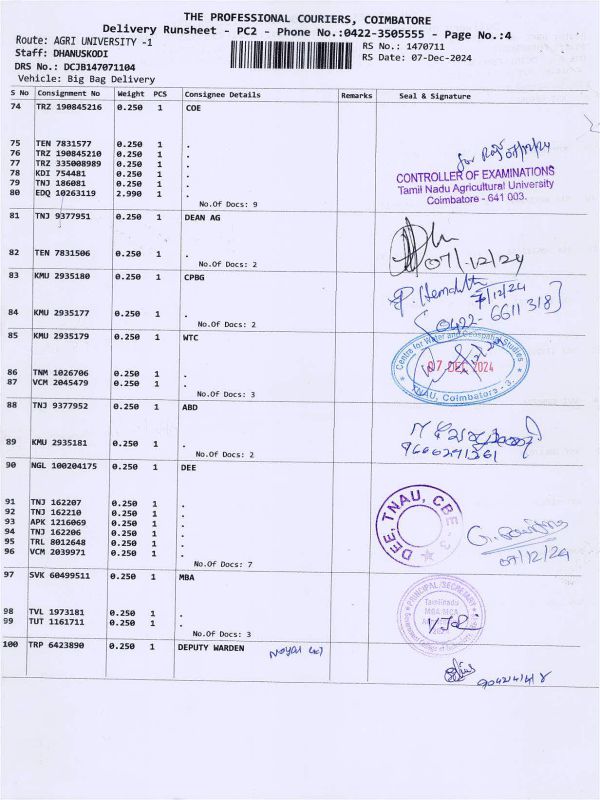 THE PROFESSIONAL COURIERS, COIMBATORE
Delivery Runsheet - PC2 - Phone No.:0422-3505555 - Page No.:4
Route: AGRI UNIVERSITY -1
RS No.: 1470711
Staff: DHANUSKODI
RS Date: 07-Dec-2024
DRS No.: DCJB147071104
Vehicle: Big Bag Delivery
S No Consignment No Weight PCS Consignee Details Remarks Seal & Signature
74 TRZ 190845216 0.250 1 COE
75 TEN 7831577 0.250 1 .
76 TRZ 190845210 0.250 1 .
77 TRZ 335008989 0.250 1 .
78 KDI 754481 0.250 1 .
79 TNJ 186081 0.250 1 .
80 EDQ 10263119 2.990 1 .
No.Of Docs: 9
for 07/12/24
CONTROLLER OF EXAMINATIONS
Tamil Nadu Agricultural University
Coimbatore - 641 003.
81 TNJ 9377951 0.250 1 DEAN AG
82 TEN 7831506 0.250 1 .
No.Of Docs: 2
07/12/24
83 KMU 2935180 0.250 1 CPBG
84 KMU 2935177 0.250 1 .
No.Of Docs: 2
7/12/24
0422-6611 318
85 KMU 2935179 0.250 1 WTC
86 TNM 1026706 0.250 1 .
87 VCM 2045479 0.250 1 .
No.Of Docs: 3
Centre for Water and Geospatial Studies
07 DEC 2024
TNAU, Coimbatore - 3.
88 TNJ 9377952 0.250 1 ABD
89 KMU 2935181 0.250 1 .
No.Of Docs: 2
90 NGL 100204175 0.250 1 DEE
91 TNJ 162207 0.250 1 .
92 TNJ 162210 0.250 1 .
93 APK 1216069 0.250 1 .
94 TNJ 162206 0.250 1 .
95 TRL 8012648 0.250 1 .
96 VCM 2039971 0.250 1 .
No.Of Docs: 7
DEE, TNAU, CBE - 3
07/12/24
97 SVK 60499511 0.250 1 MBA
98 TVL 1973181 0.250 1 .
99 TUT 1161711 0.250 1 .
No.Of Docs: 3
PRINCIPAL/SECRETARY
Tamilnadu
MBA/MCA
100 TRP 6423890 0.250 1 DEPUTY WARDEN